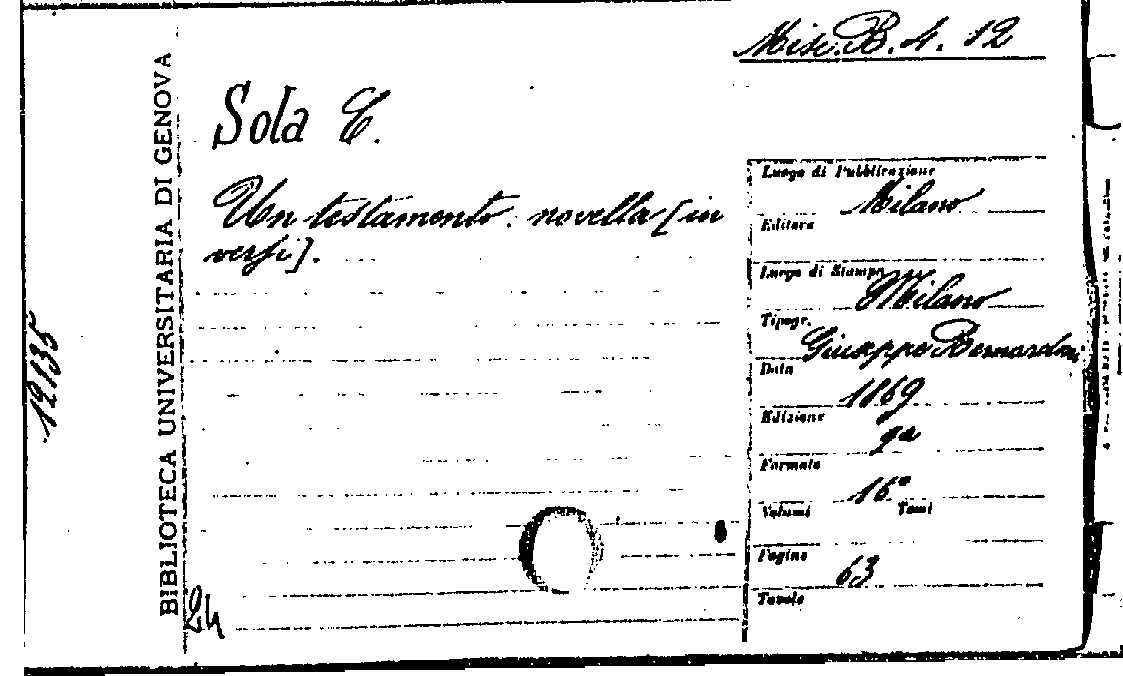 Misc. B. 4. 12
BIBLIOTECA UNIVERSITARIA DI GENOVA
Sola E.
Un testamento. novella [in
versi].
Luogo di Pubblicazione
Milano
Editore
Luogo di Stampa
Milano
Tipogr.
Giuseppe Bernardoni
Data
1869
Edizione
2a
Formato
16°
Volumi Tomi
Pagine
63
Tavole
12135